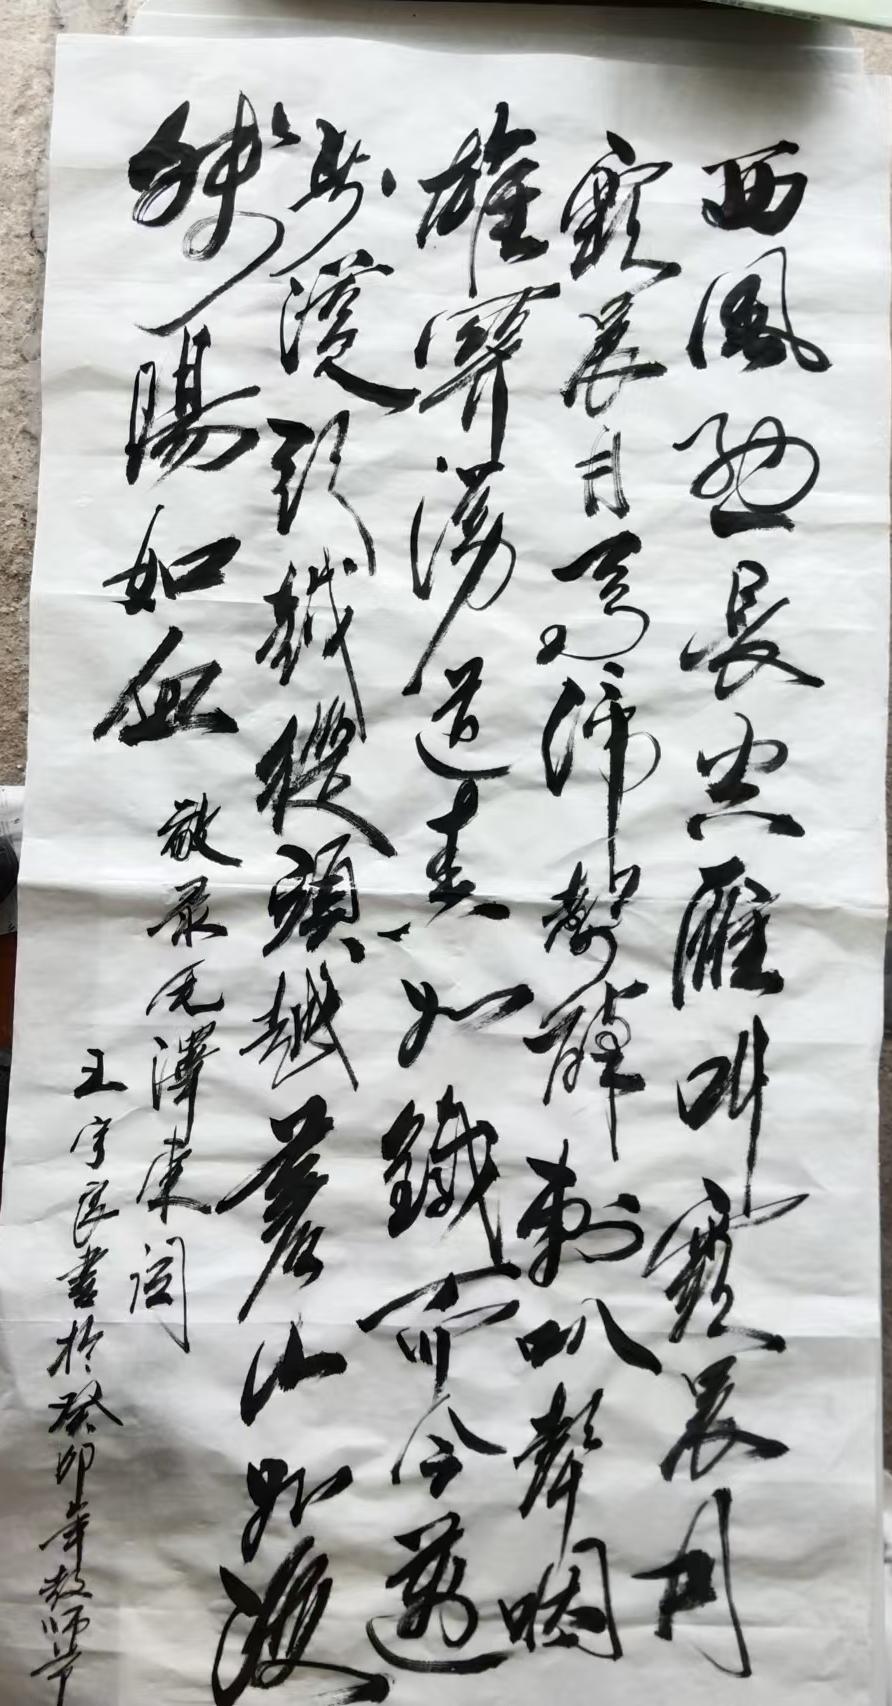 西風烈長空雁叫霜晨月
霜晨月馬蹄聲碎喇叭聲咽
雄關漫道真如鐵而今邁
步從頭越從頭越蒼山如海
殘陽如血
敬录毛澤東詞
王宇良書於癸卯年教師节